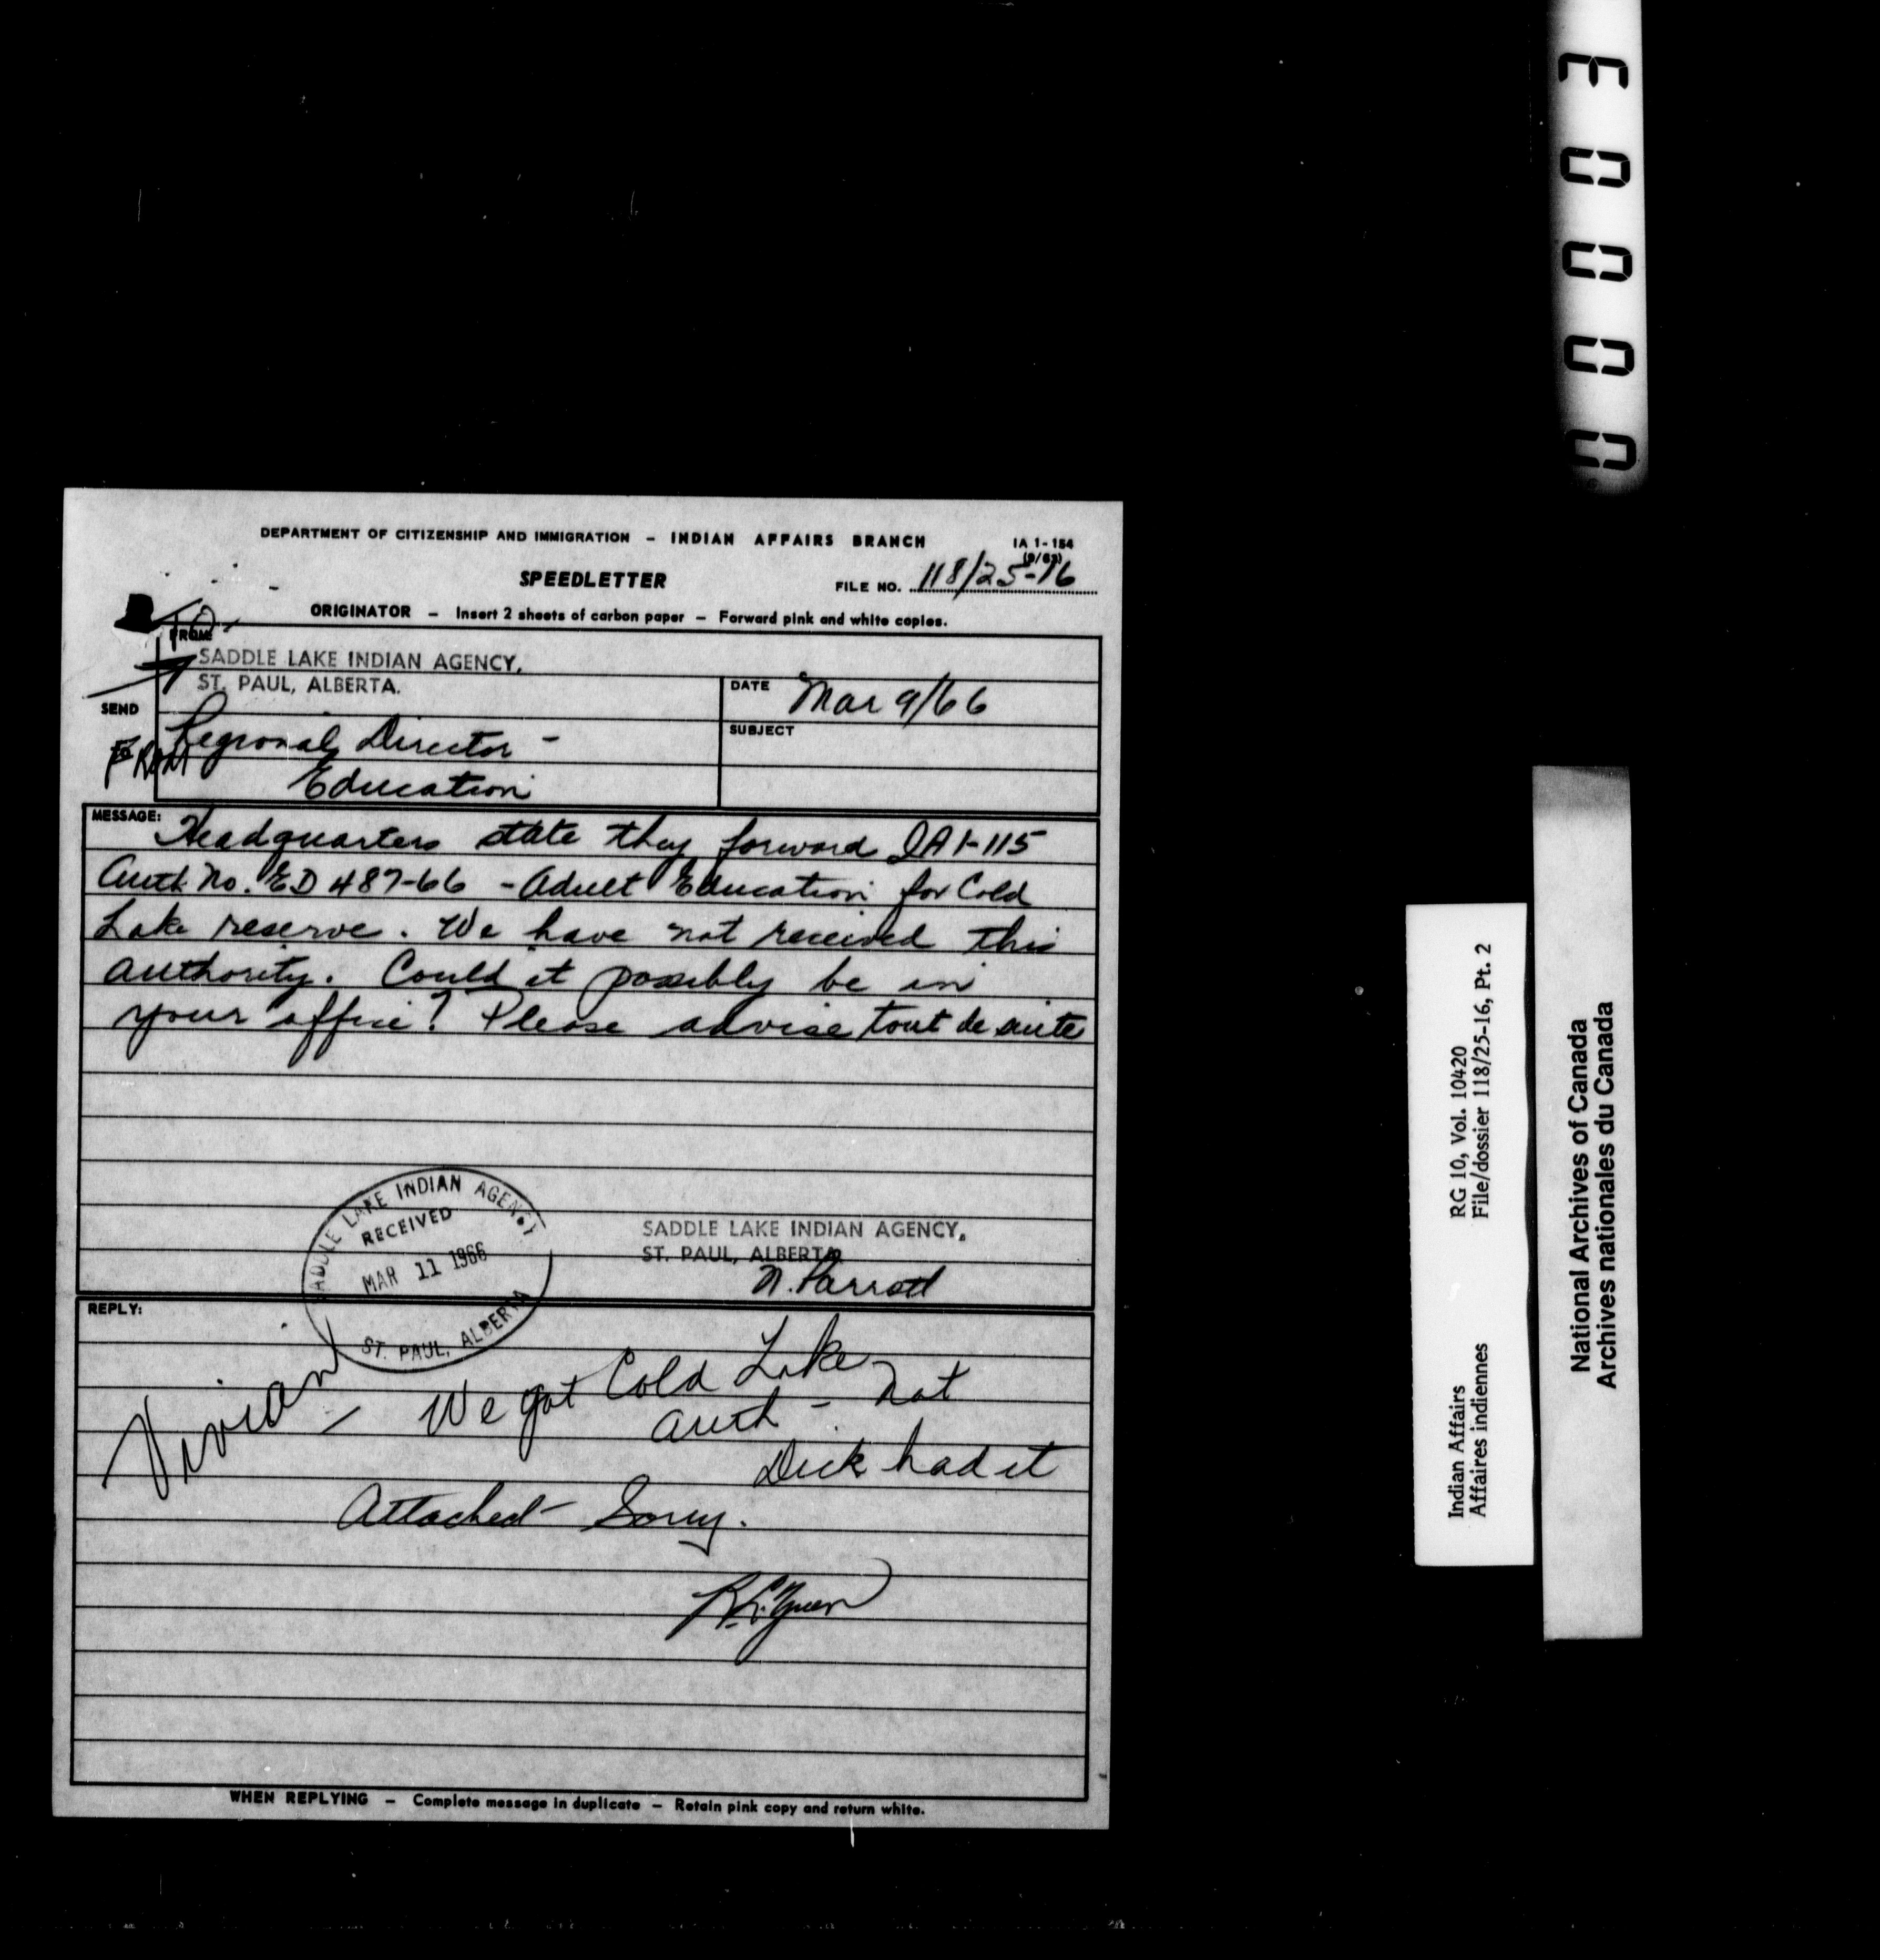 DEPARTMENT OF CITIZENSHIP AND IMMIGRATION – INDIAN AFFAIRS BRANCH
IA 1-154
(9/63)
SPEEDLETTER
FILE NO. 118/25-16
ORIGINATOR – Insert 2 sheets of carbon paper – Forward pink and white copies.
TO
FROM:
SADDLE LAKE INDIAN AGENCY,
ST. PAUL, ALBERTA.
DATE Mar 9/66
SEND
SUBJECT
TO
FROM
Regional Director -
Education
MESSAGE:
Headquarters state they forward IA 1-115
Auth No. ED 487-66 - Adult Education for Cold
Lake reserve. We have not received this
authority. Could it possibly be in
your office? Please advise tout de suite
SADDLE LAKE INDIAN AGENCY
RECEIVED
MAR 11 1966
ST. PAUL, ALBERTA
SADDLE LAKE INDIAN AGENCY,
ST. PAUL, ALBERTA
N. Parrott
REPLY:
Vivian - We got Cold Lake
auth - not
Dick had it
Attached - Sorry.
WHEN REPLYING – Complete message in duplicate – Retain pink copy and return white.
00003
Indian Affairs
Affaires indiennes
RG 10, Vol. 10420
File/dossier 118/25-16, Pt. 2
National Archives of Canada
Archives nationales du Canada